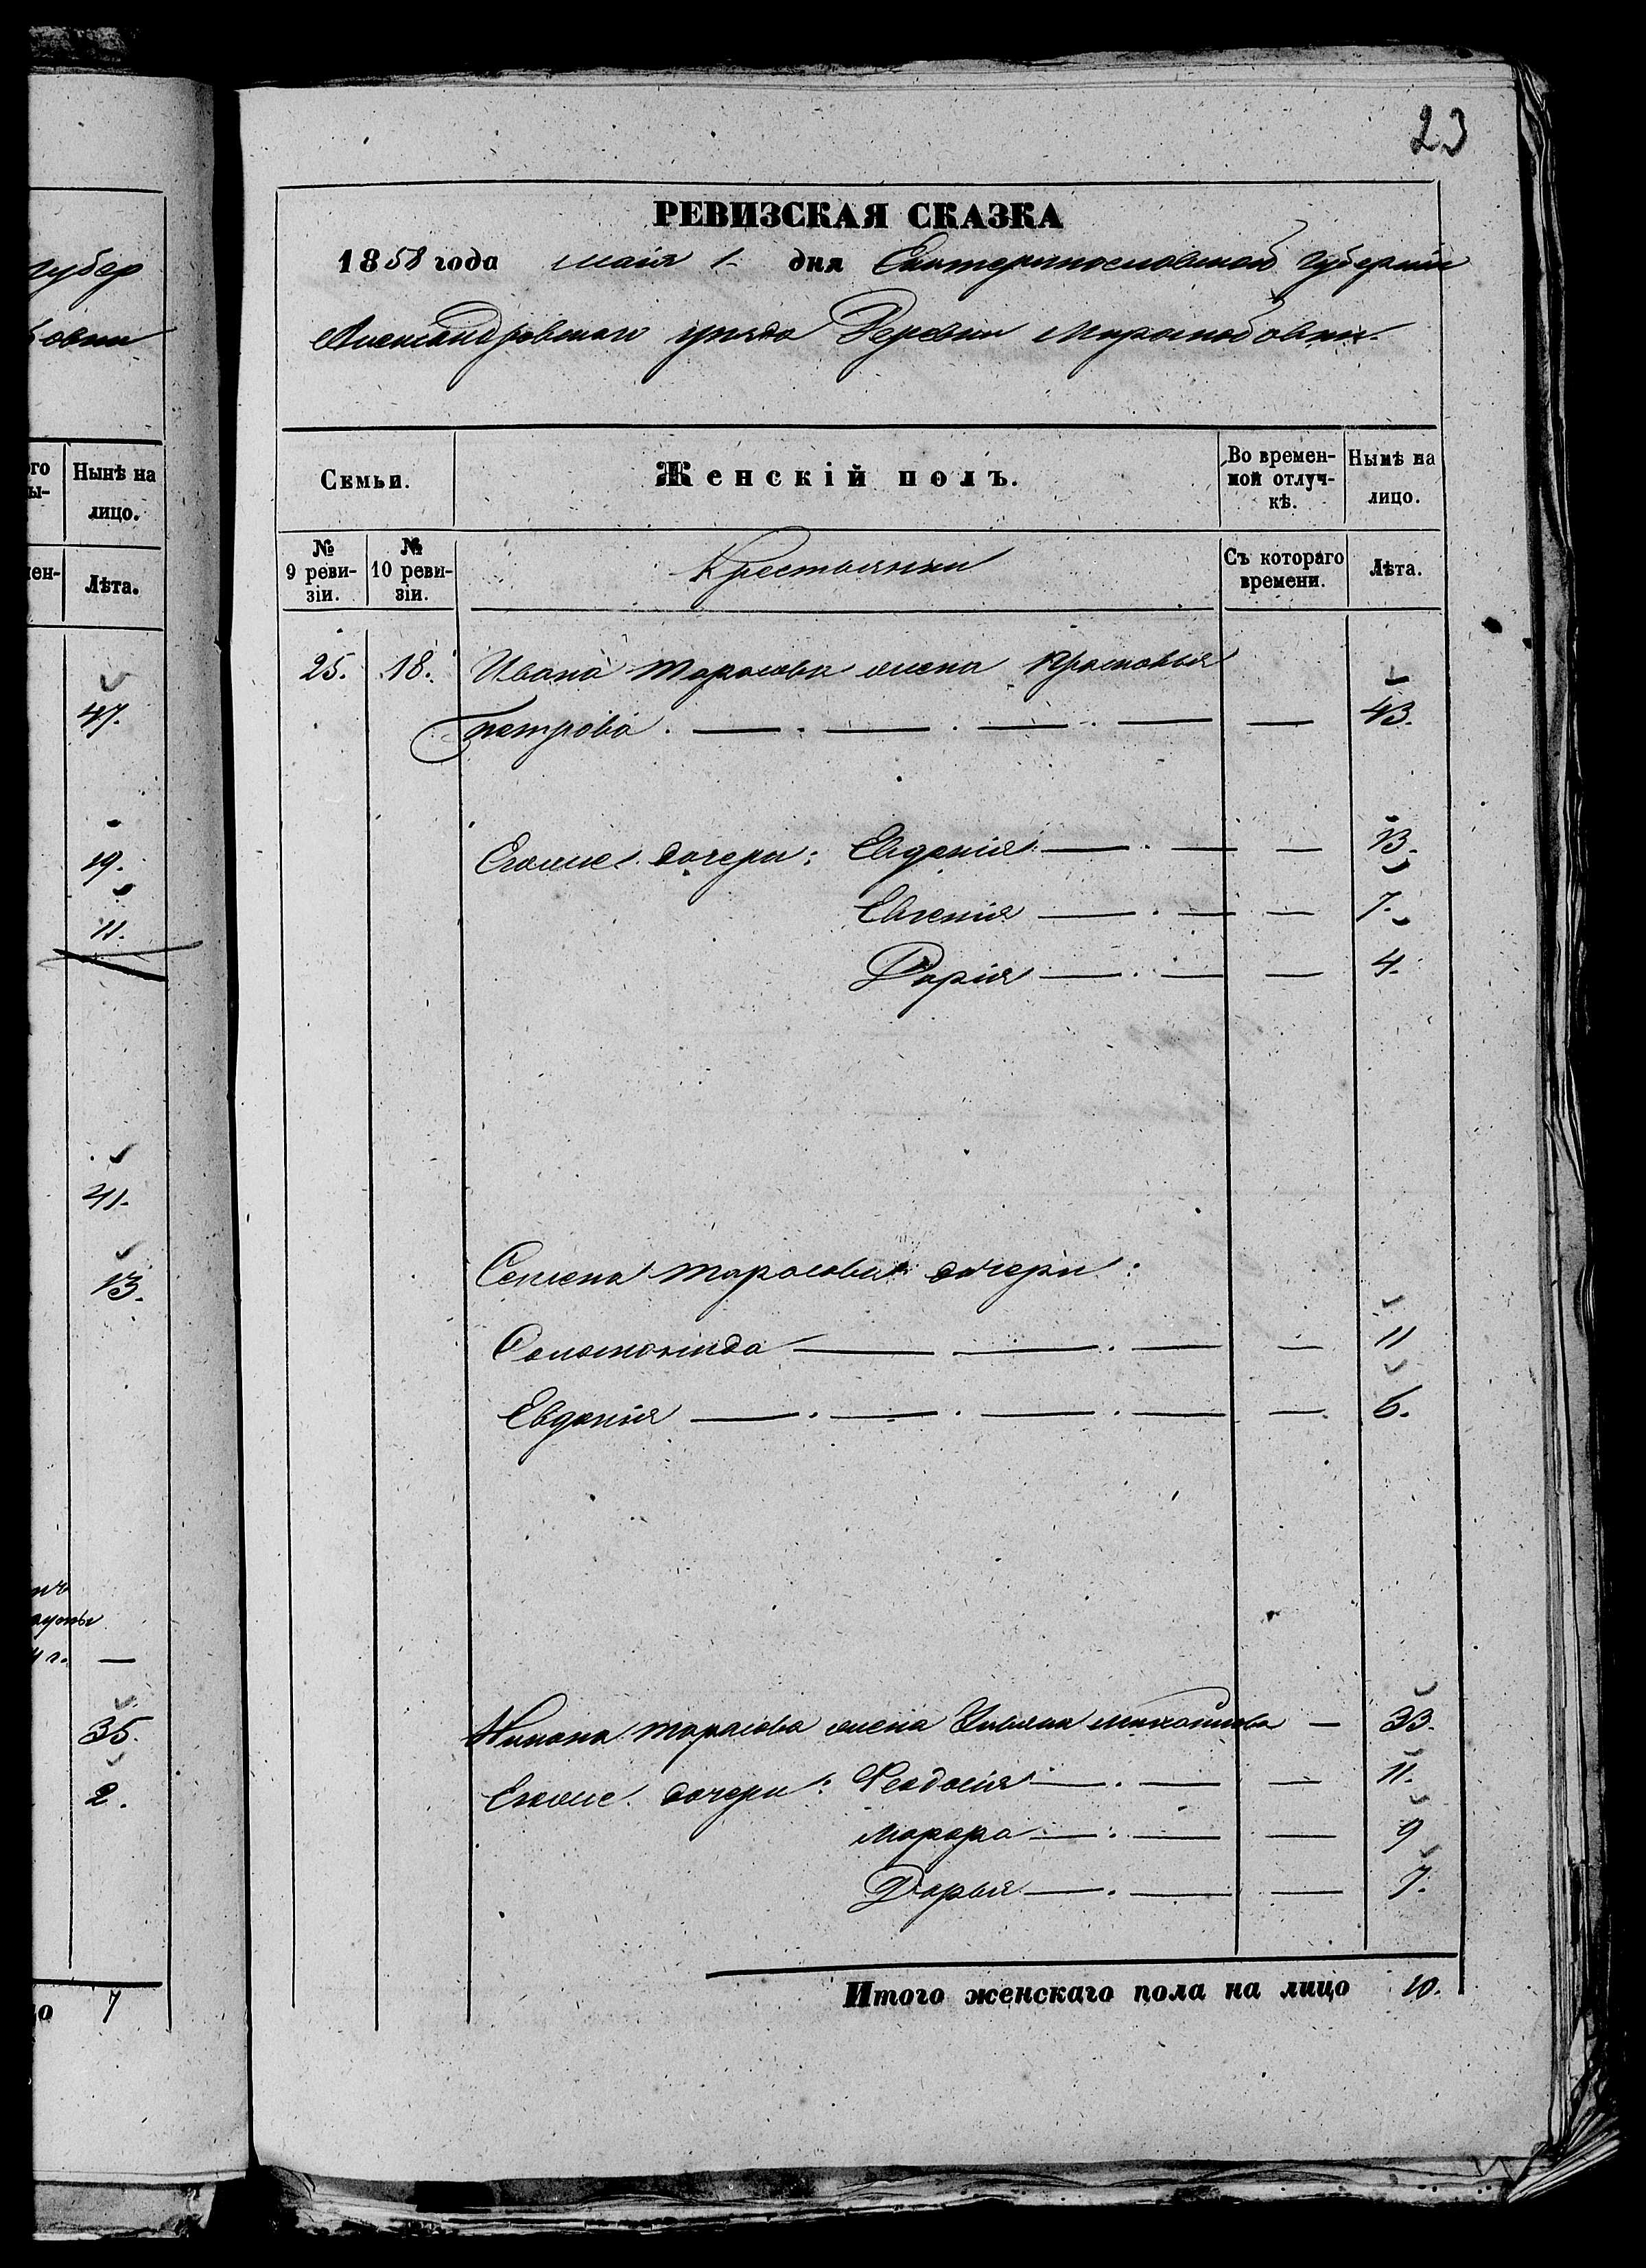 губер
овки
го
ы-
Нынѣ на
лицо.
мен-
Лѣта.
47.
19.
11.
41.
13.
4 г. —
35.
2.
о 7
23
РЕВИЗСКАЯ СКАЗКА
1858 года маія 1 дня Екатеринославской губерніи
Александровскаго уѣзда Деревни Миролюбовки.
Семьи.
Женскій полъ.
Во времен-
ной отлуч-
кѣ.
Нынѣ на
лицо.
№
9 реви-
зіи.
№
10 реви-
зіи.
Крестьянки
Съ котораго
времени.
Лѣта.
25. 18. Ивана Тарасова жена Прасковья
Петрова . — . — . — . — — 43.
Егоже дочери: Евдокія — . — — 13.
Евгенія — . — — 7.
Дарія — . — — 4.
Семена Тарасова дочери:
Соломонида — — . — — 11
Евдокія — . — . — . — — 6.
Никона Тарасова жена Ульяна Михайлова — 33.
Егоже дочери: Феодосія — . — — 11.
Марфа — . — — 9
Дарья — . — — 7.
Итого женскаго пола на лицо 10.